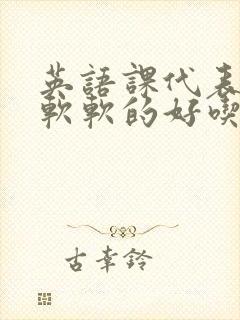 英語課代表
軟軟的好喫
古幸鈴